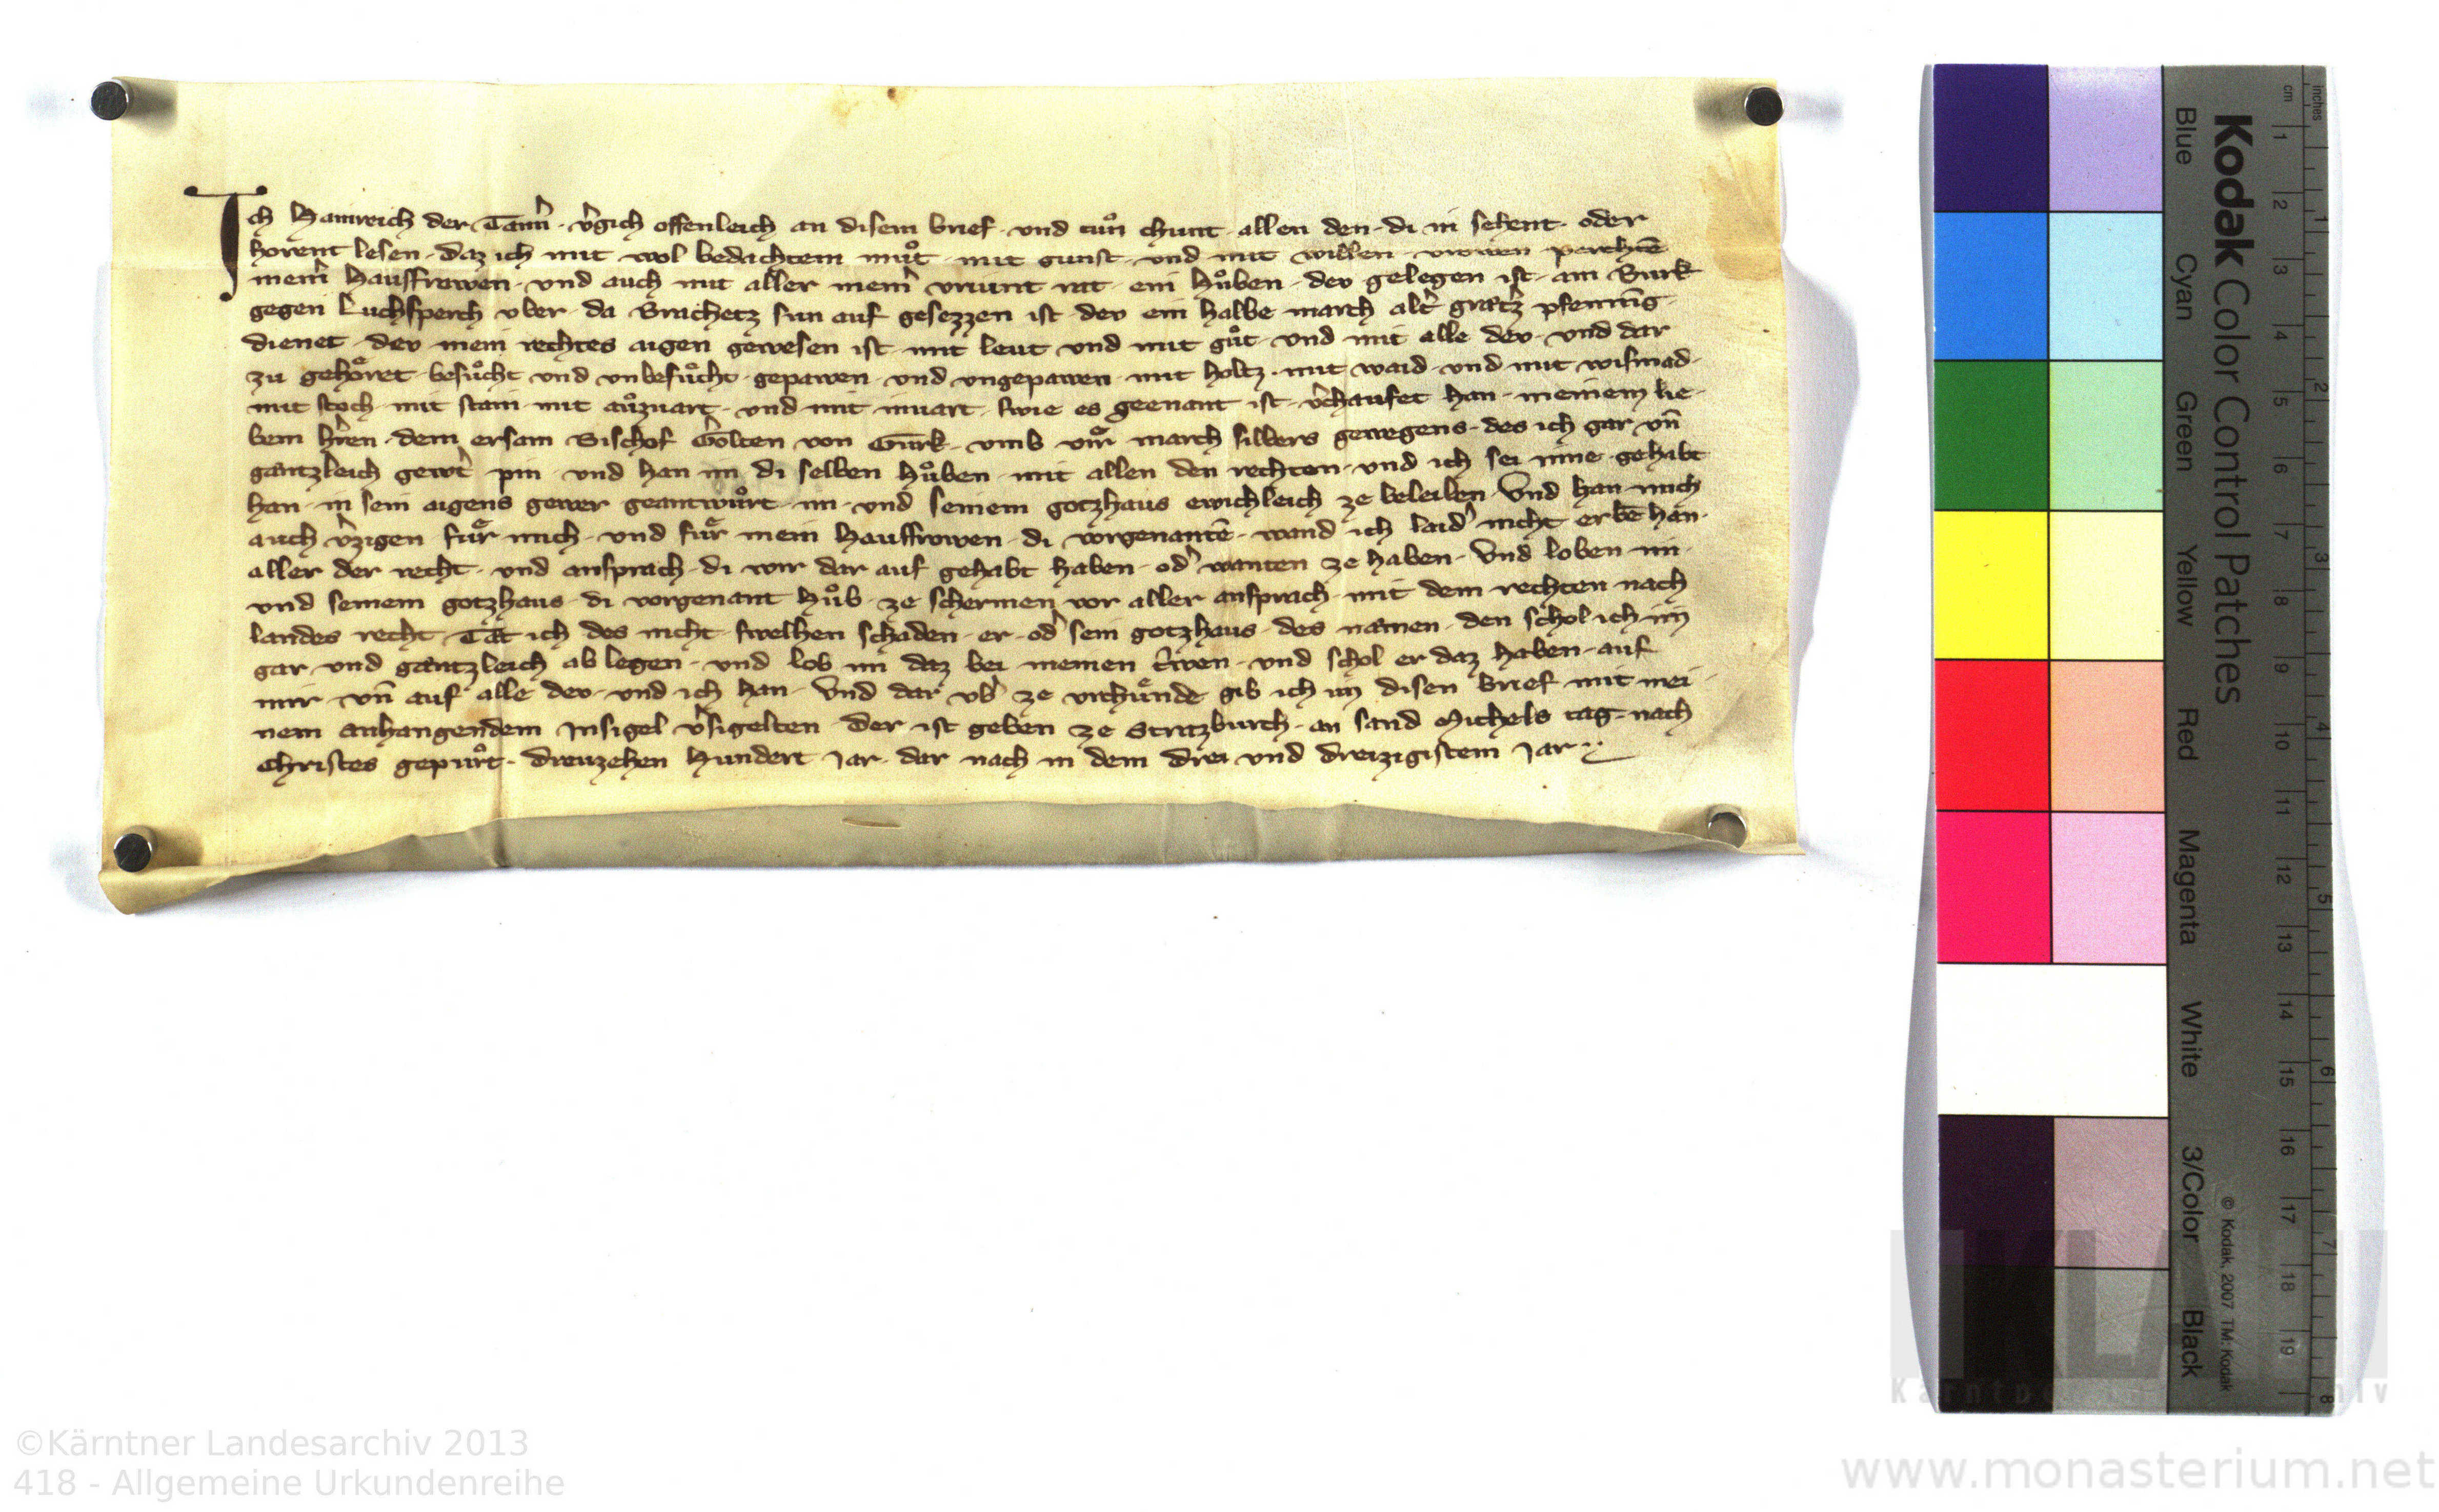 Ich Hainreich der Tanͥ · vͥgich offenleich an disem brief · und tuͦn chunt · allen den · di in sehent · oder
horent lesen · daz ich mit wol bedachtem muͦt · mit gunst · und mit willen · vrowen perchtē
meinͥ hausfrowen · und auch mit aller meinͥ vriunt rat · ein Huͦben · dev gelegen ist · am Burk
gegen Luchsperch vber · da Brachetz sun auf gesezzen ist · dev ein halbe march altͥ Gretzͥ pfenning ·
dienet · dev mein rechtes aigen gewesen ist · mit leut und mit guͦt · und mit alle dev · und dar
zu gehoͤret · besuͦcht und unbesuͦcht · gepawen · und ungepawen · mit holtz · mit waid · und mit wismad ·
mit stoch · mit stam · mit auͦzvart · und mit invart · swie es geenant ist · vͥchaufet han · meinem lie ·
bem hͥren · dem ersam Bischof Gͥolten von Gurk · umb vier march silbers gewegens · des ich gar un̄
gantzleich gewͥt pin · und han im di selben Huͦben · mit allen den rechten · und ich sei inne gehabt
han · in sein aigens gewer geantwuͦrt · im · und seinem gotzhaus ewichleich ze beleiben · Und han mich
auch vͥzigen fuͤr mich · und fuͤr mein Hausfrowen · di vorgenantē · wand ich laidͥ nicht erbē han ·
aller der recht · und ansprach · di wir dar auf gehabt haben · odͥ wanten ze haben · Und loben im ·
und seinem gotzhaus · di vorgenant Huͦb · ze schermen vor aller ansprach · mit dem rechten nach
landes recht · Tet ich des nicht · swelhen schaden · er · odͥ sein gotzhaus · des namen · den schol ich im
gar und gantzleich ab legen · und lob im daz bei meinen tͥwen · und schol er daz haben · auf
mir · un̄ auf alle dev · und ich han · Und dar vbͥ ze vrchuͤnde gib ich im disen brief mit mei ·
nem anhangendem Insigel vͥsigelten · der ist geben ze Strazburch · an sand Michels tag · nach
Christes gepuͦrt · dreuzehen Hundert Jar · dar nach in dem drei und dreizigistem Jar
Kodak Color Control Patches
Blue Cyan Green Yellow Red Magenta White 3/Color Black
© Kodak, 2007 TM: Kodak
cm 1 2 3 4 5 6 7 8 9 10 11 12 13 14 15 16 17 18 19
inches 1 2 3 4 5 6 7 8
©Kärntner Landesarchiv 2013
418 - Allgemeine Urkundenreihe
www.monasterium.net